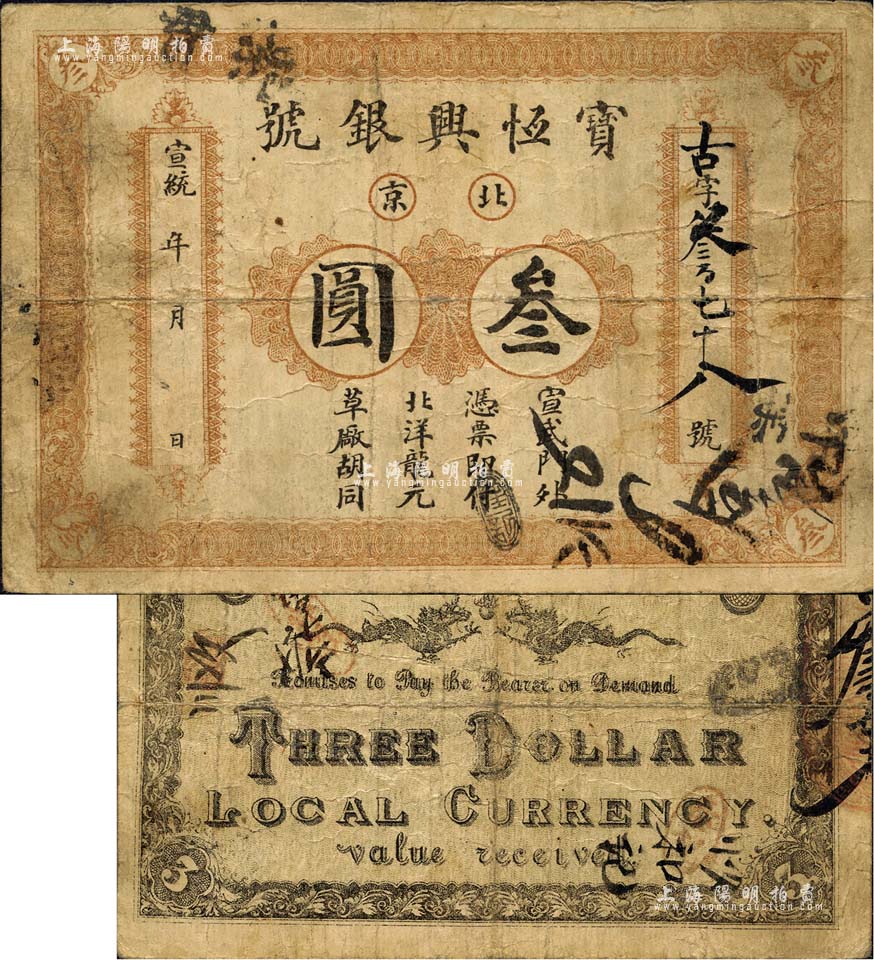 上海陽明拍賣
www.yangmingauction.com
上海陽明拍賣
www.yangmingauction.com
寶恆興銀號
北京
叁圓
古字
七十八
號
宣武門外
憑票即付
北洋龍元
草廠胡同
宣統 年 月 日
上海陽明拍賣
www.yangmingauction.com
Promises to Pay the Bearer on Demand
THREE DOLLAR
LOCAL CURRENCY.
value received
3
3
上海陽明拍賣
www.yangmingauction.com